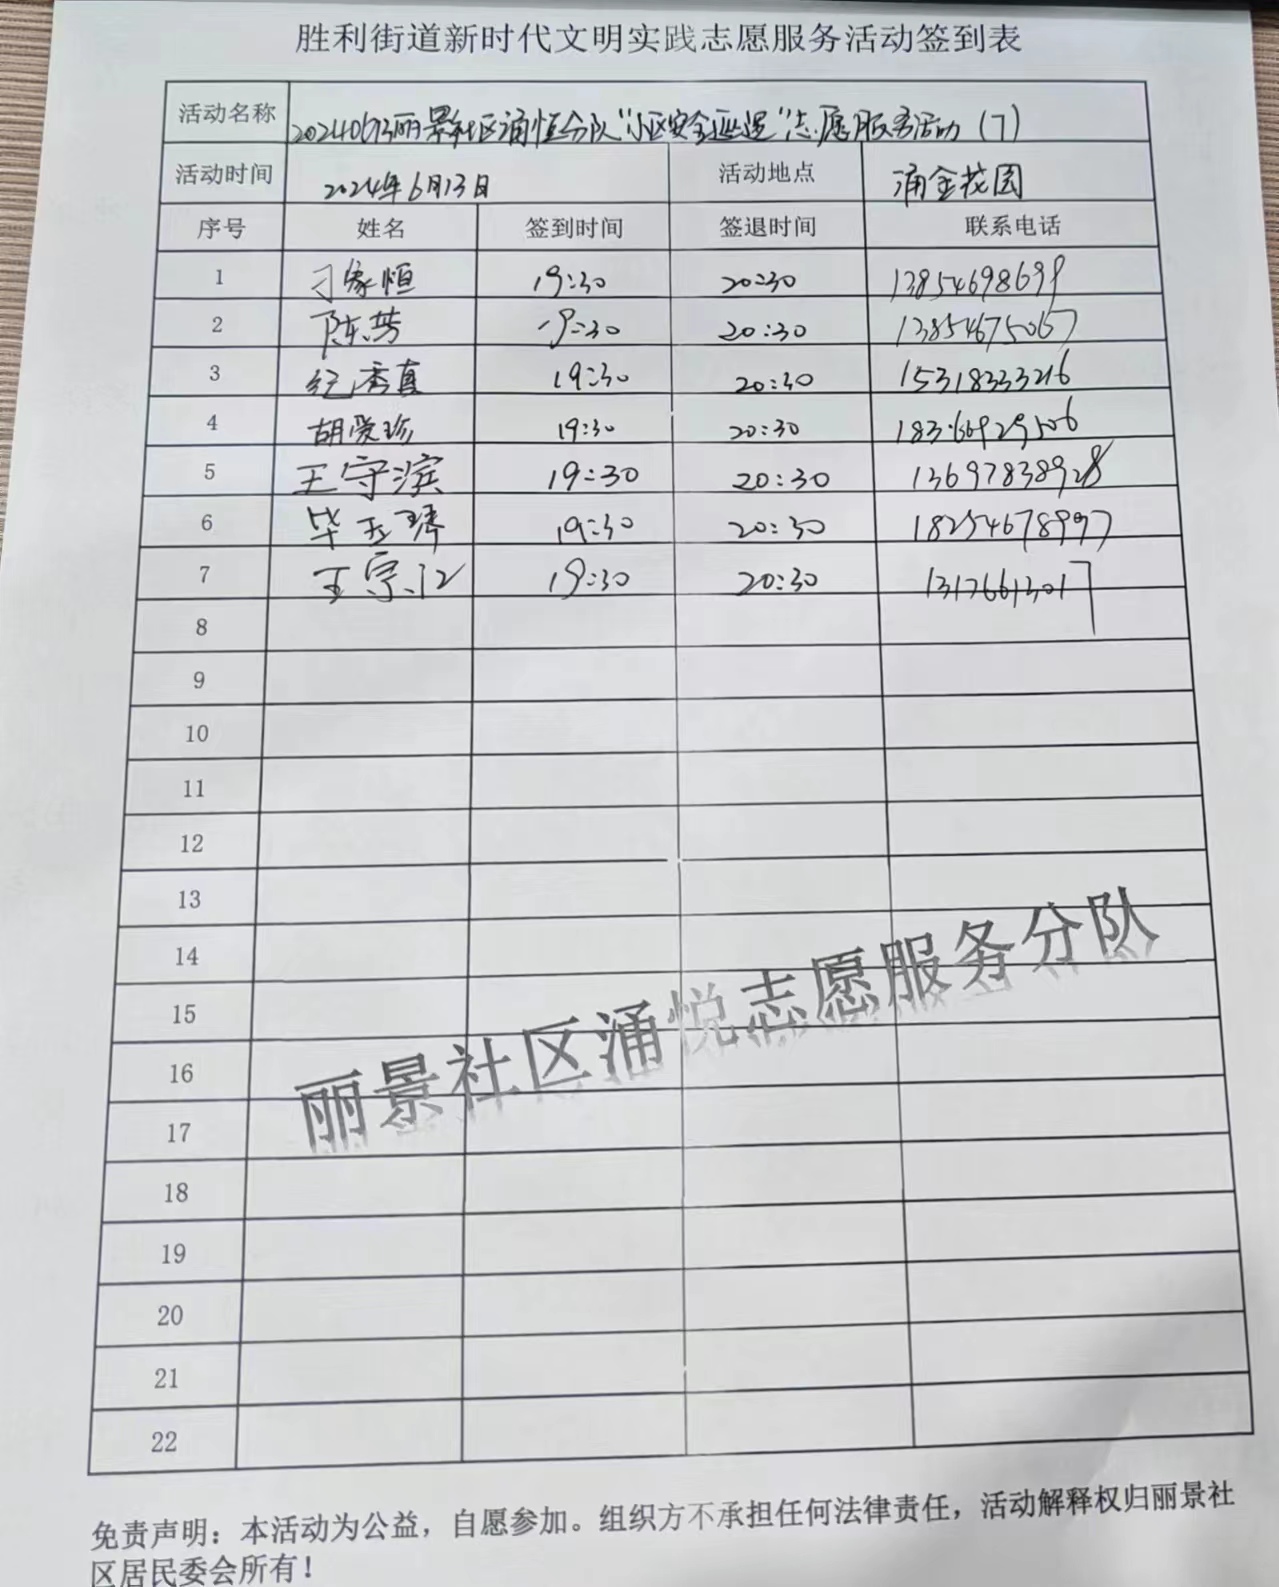 胜利街道新时代文明实践志愿服务活动签到表
活动名称 20240613丽景社区涌恒分队“小区安全巡逻”志愿服务活动（7）
活动时间 2024年6月13日 活动地点 涌金花园
序号 姓名 签到时间 签退时间 联系电话
1 刁家恒 19:30 20:30 13854698699
2 陈芳 19:30 20:30 13854675067
3 纪秀真 19:30 20:30 15318333216
4 胡爱珍 19:30 20:30 18366929506
5 王守滨 19:30 20:30 13697838928
6 毕玉琴 19:30 20:30 18254678997
7 王宗江 19:30 20:30 13176613017
8
9
10
11
12
13
14
15
16
17
18
19
20
21
22
丽景社区涌悦志愿服务分队
免责声明：本活动为公益，自愿参加。组织方不承担任何法律责任，活动解释权归丽景社
区居民委会所有！